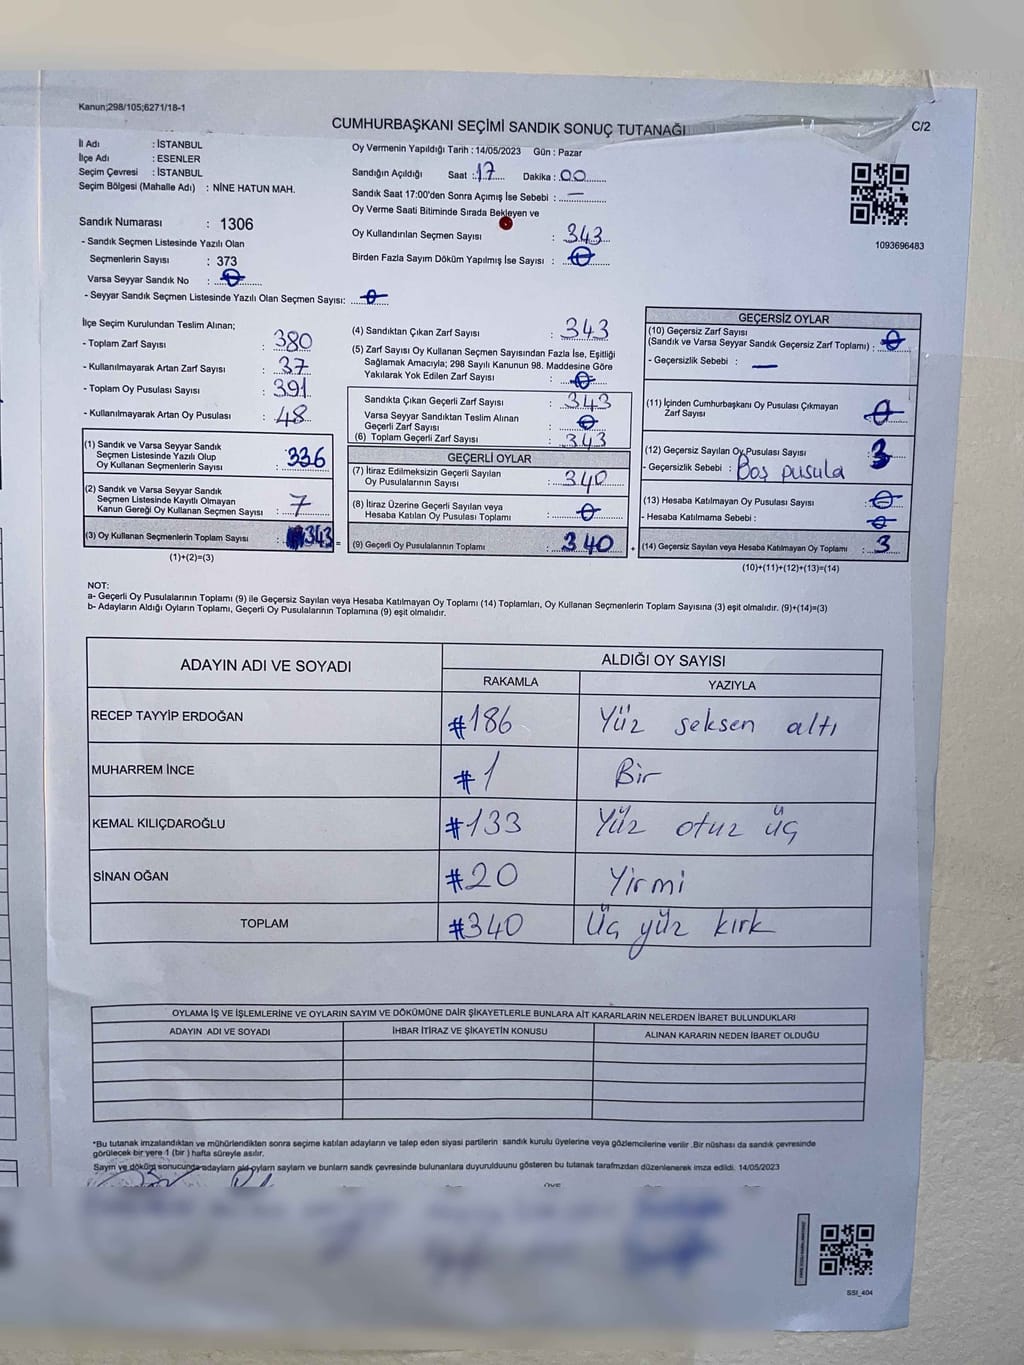 Kanun;298/105;6271/18-1
CUMHURBAŞKANI SEÇİMİ SANDIK SONUÇ TUTANAĞI
C/2
İl Adı : İSTANBUL
İlçe Adı : ESENLER
Seçim Çevresi : İSTANBUL
Seçim Bölgesi (Mahalle Adı) : NİNE HATUN MAH.
Oy Vermenin Yapıldığı Tarih : 14/05/2023 Gün : Pazar
Sandığın Açıldığı Saat : 17 Dakika : 00
Sandık Saat 17:00'den Sonra Açımış İse Sebebi : —
Oy Verme Saati Bitiminde Sırada Bekleyen ve
Oy Kullandırılan Seçmen Sayısı : 343
Birden Fazla Sayım Döküm Yapılmış İse Sayısı : 0
1093696483
Sandık Numarası : 1306
- Sandık Seçmen Listesinde Yazılı Olan
Seçmenlerin Sayısı : 373
Varsa Seyyar Sandık No : 0
- Seyyar Sandık Seçmen Listesinde Yazılı Olan Seçmen Sayısı: 0
İlçe Seçim Kurulundan Teslim Alınan;
- Toplam Zarf Sayısı : 380
- Kullanılmayarak Artan Zarf Sayısı : 37
- Toplam Oy Pusulası Sayısı : 391
- Kullanılmayarak Artan Oy Pusulası : 48
(1) Sandık ve Varsa Seyyar Sandık
Seçmen Listesinde Yazılı Olup
Oy Kullanan Seçmenlerin Sayısı : 336
(2) Sandık ve Varsa Seyyar Sandık
Seçmen Listesinde Kayıtlı Olmayan
Kanun Gereği Oy Kullanan Seçmen Sayısı : 7
(3) Oy Kullanan Seçmenlerin Toplam Sayısı : 343 =
(1)+(2)=(3)
(4) Sandıktan Çıkan Zarf Sayısı : 343
(5) Zarf Sayısı Oy Kullanan Seçmen Sayısından Fazla İse, Eşitliği
Sağlamak Amacıyla; 298 Sayılı Kanunun 98. Maddesine Göre
Yakılarak Yok Edilen Zarf Sayısı : 0
Sandıkta Çıkan Geçerli Zarf Sayısı : 343
Varsa Seyyar Sandıktan Teslim Alınan
Geçerli Zarf Sayısı : 0
(6) Toplam Geçerli Zarf Sayısı : 343
GEÇERLİ OYLAR
(7) İtiraz Edilmeksizin Geçerli Sayılan
Oy Pusulalarının Sayısı : 340
(8) İtiraz Üzerine Geçerli Sayılan veya
Hesaba Katılan Oy Pusulası Toplamı : 0
(9) Geçerli Oy Pusulalarının Toplamı : 340 +
GEÇERSİZ OYLAR
(10) Geçersiz Zarf Sayısı
(Sandık ve Varsa Seyyar Sandık Geçersiz Zarf Toplamı) : 0
- Geçersizlik Sebebi : —
(11) İçinden Cumhurbaşkanı Oy Pusulası Çıkmayan
Zarf Sayısı : 0
(12) Geçersiz Sayılan Oy Pusulası Sayısı : 3
- Geçersizlik Sebebi : Boş pusula
(13) Hesaba Katılmayan Oy Pusulası Sayısı : 0
- Hesaba Katılmama Sebebi : 0
(14) Geçersiz Sayılan veya Hesaba Katılmayan Oy Toplamı : 3
(10)+(11)+(12)+(13)=(14)
NOT:
a- Geçerli Oy Pusulalarının Toplamı (9) ile Geçersiz Sayılan veya Hesaba Katılmayan Oy Toplamı (14) Toplamları, Oy Kullanan Seçmenlerin Toplam Sayısına (3) eşit olmalıdır. (9)+(14)=(3)
b- Adayların Aldığı Oyların Toplamı, Geçerli Oy Pusulalarının Toplamına (9) eşit olmalıdır.
ADAYIN ADI VE SOYADI ALDIĞI OY SAYISI
RAKAMLA YAZIYLA
RECEP TAYYİP ERDOĞAN #186 Yüz seksen altı
MUHARREM İNCE #1 Bir
KEMAL KILIÇDAROĞLU #133 Yüz otuz üç
SİNAN OĞAN #20 Yirmi
TOPLAM #340 Üç yüz kırk
OYLAMA İŞ VE İŞLEMLERİNE VE OYLARIN SAYIM VE DÖKÜMÜNE DAİR ŞİKAYETLERLE BUNLARA AİT KARARLARIN NELERDEN İBARET BULUNDUKLARI
ADAYIN ADI VE SOYADI İHBAR İTİRAZ VE ŞİKAYETİN KONUSU ALINAN KARARIN NEDEN İBARET OLDUĞU
*Bu tutanak imzalandıktan ve mühürlendikten sonra seçime katılan adayların ve talep eden siyasi partilerin sandık kurulu üyelerine veya gözlemcilerine verilir .Bir nüshası da sandık çevresinde
görülecek bir yere 1 (bir ) hafta süreyle asılır.
Sayım ve döküm sonucunda adayların ald oyların saylarn ve bunlarn sandk çevresinde bulunanlara duyurulduunu gösteren bu tutanak tarafmzdan düzenlenerek imza edildi. 14/05/2023
SSI_404